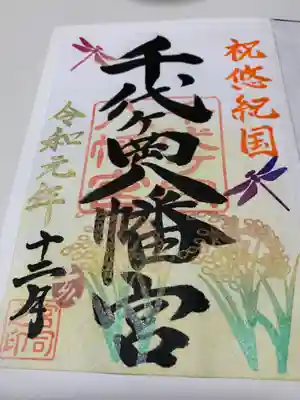 祝悠紀国
千代ヶ岡八幡宮
令和元年
十二月